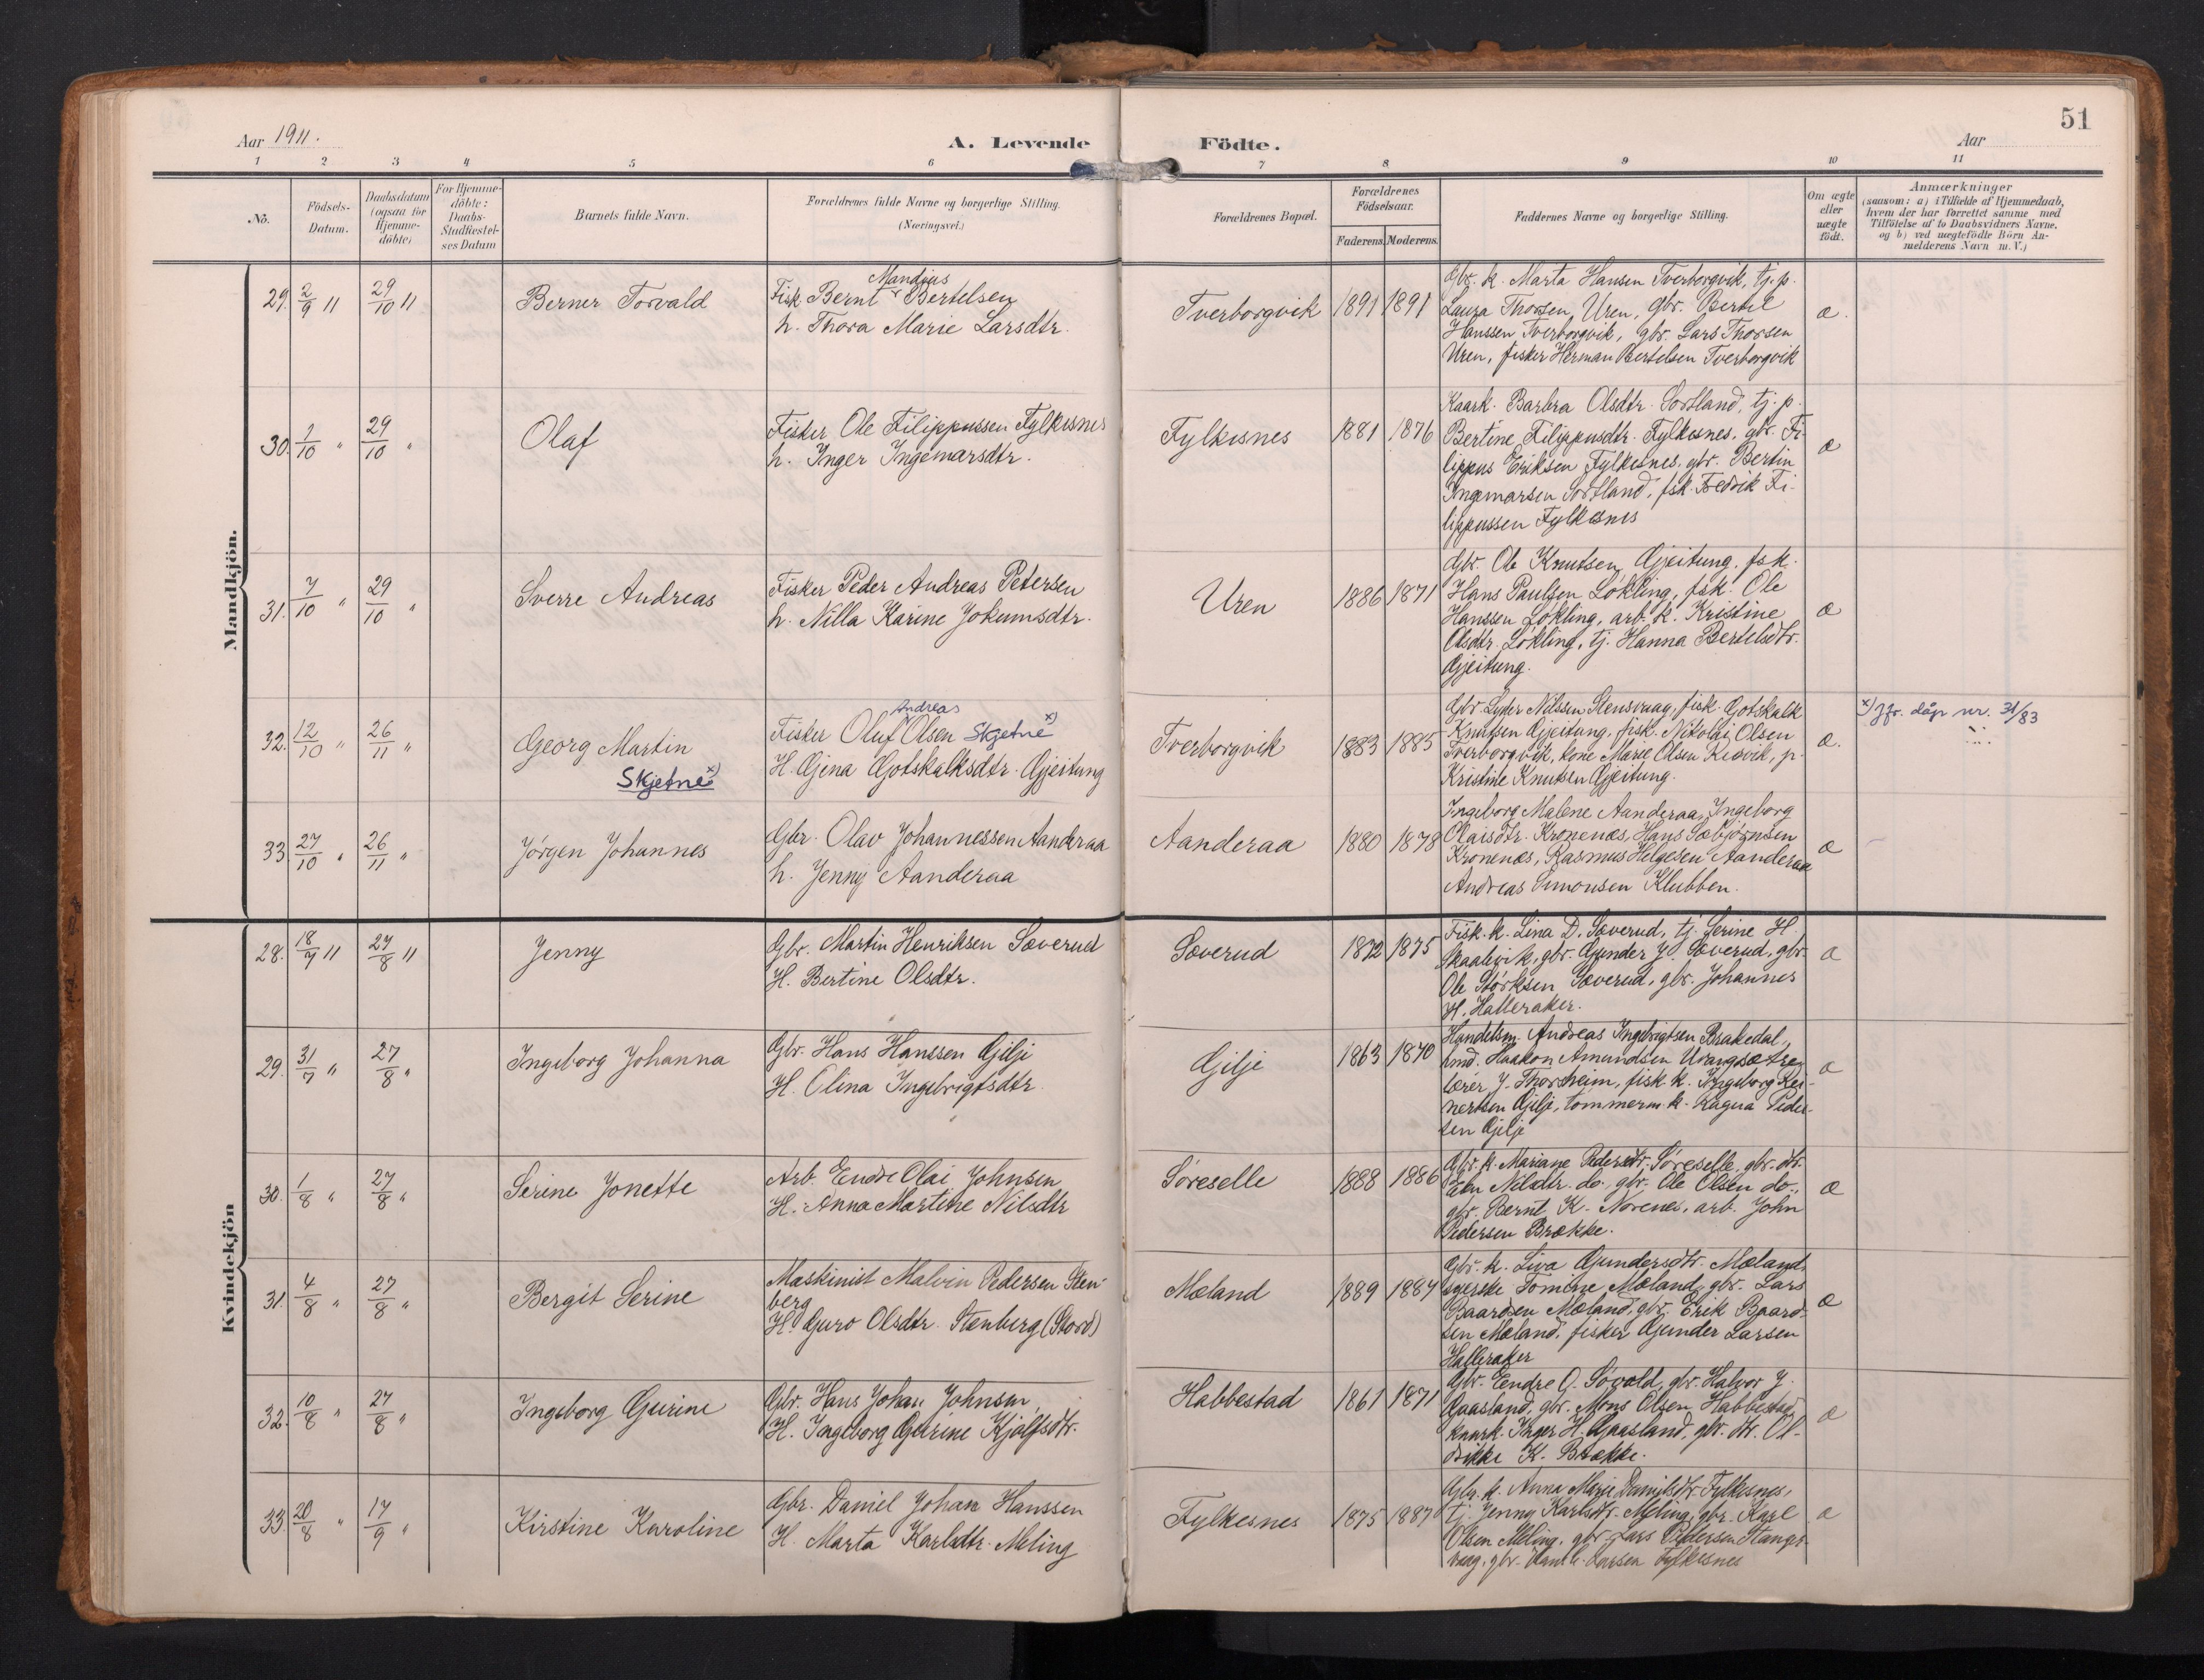 51
Aar 1911.
A. Levende Födte.
Aar
1 2 3 4 5 6 7 8 9 10 11
No.
Födsels-
Datum.
Daabsdatum
(ogsaa for
Hjemme-
döbte)
For Hjemme-
döbte:
Daabs-
Stadfæstel-
ses Datum
Barnets fulde Navn.
Forældrenes fulde Navne og borgerlige Stilling.
(Næringsvei.)
Forældrenes Bopæl.
Forældrenes
Födselsaar.
Faderens. Moderens.
Faddernes Navne og borgerlige Stilling.
Om ægte
eller
uægte
födt.
Anmærkninger
(saasom: a) i Tilfælde af Hjemmedaab,
hvem der har forrettet samme med
Tilföielse af to Daabsvidners Navne,
og b) ved uægtefödte Börn An-
melderens Navn m. V.)
Mandkjön.
29. 2/9 11 29/10 11
Berner Torvald
Mandius
Fisk. Bernt Bertelsen
h. Thora Marie Larsdtr.
Tverborgvik 1891 1891
Gbr. k. Marta Hansen Tverborgvik, tj. p.
Laura Thorsen Uren, gbr. Bertel
Hanssen Tverborgvik, gbr. Lars Thorsen
Uren, fisker Herman Bertelsen Tverborgvik
æ.
30. 1/10 " 29/10 "
Olaf
Fisker Ole Filippussen Fylkesnes
h. Inger Ingemarsdtr.
Fylkesnes 1881 1876
Kaark. Barbra Olsdtr. Sortland, tj. p.
Bertine Filippusdtr. Fylkesnes, gbr. Fi-
lippus Eriksen Fylkesnes, gbr. Bertin
Ingemarsen Sortland, fsk. Fredrik Fi-
lippussen Fylkesnes
æ
31. 7/10 " 29/10 "
Sverre Andreas
Fisker Peder Andreas Petersen
h. Nilla Karine Jokumsdtr.
Uren 1886 1871
Gbr. Ole Knutsen Gjeitung, fsk.
Hans Paulsen Løkling, fsk. Ole
Hanssen Løkling, arb. k. Kristine
Olsdtr. Løkling, tj. Hanna Bertelsdtr.
Gjeitung.
æ
32. 12/10 " 26/11 "
Georg Martin
Skjetne x)
Andreas
Fisker Oluf Olsen Skjetne x)
H. Gjena Gotskalksdtr. Gjeitung
Tverborgvik 1883 1885
Gbr. Lyder Nilssen Stensvaag, fisk. Gotskalk
Knutsen Gjeitung, fisk. Nikolai Olsen
Tverborgvik, kone Marie Olsen, p.
Kristine Knutsen Gjeitung.
æ.
x) Jfr. dåp nr. 31/83
33. 27/10 " 26/11 "
Jørgen Johannes
Gbr. Olav Johannessen Aanderaa
h. Jenny Aanderaa
Aanderaa 1880 1878
Ingeborg Malene Aanderaa, Ingeborg
Olaisdtr. Kronenæs, Hans Sæbjørnsen
Kronenæs, Rasmus Helgesen Aanderaa
Andreas Simonsen Klubben.
æ
Kvindekjön
28. 18/7 11 27/8 11
Jenny
Gbr. Martin Henriksen Sæverud
H. Bertine Olsdtr.
Sæverud 1872 1875
Fisk. k. Lina D. Sæverud, tj. Serine H.
Skaalevik, gbr. Gunder J. Sæverud, gbr.
Ole Størksen Sæverud, gbr. Johannes
H. Halleraker.
æ
29. 31/7 " 27/8 "
Ingeborg Johanna
Gbr. Hans Hanssen Gilje
H. Olina Ingebrigtsdtr.
Gilje 1863 1870
Handelsm. Andreas Ingebrigtsen Brakedal,
lmd. Haakon Amundsen Urangsætre,
lærer J. Thorsheim, fisk. k. Ingeborg Rei-
nertsen Gilje, tømmerm. k. Ragna Peder-
sen Gilje
æ
30. 1/8 " 27/8 "
Serine Jonette
Arb. Endre Olai Johnsen
H. Anna Martine Nilsdtr
Søreselle 1888 1886
Gbr. k. Mariane Pedersdtr. Søreselle, gbr. dtr.
Elen Nilsdtr. do., gbr. Ole Olsen do.,
gbr. Bernt K. Norenes, arb. John
Pedersen Brække.
æ
31. 4/8 " 27/8 "
Bergit Serine
Maskinist Malvin Pedersen Sten-
berg
H. Guro Olsdtr. Stenberg (Stord)
Mæland 1889 1884
Gbr. k. Liva Gundersdtr. Mæland,
syerske Tomine Mæland, gbr. Lars
Baardsen Mæland, gbr. Erik Baard-
sen Mæland, fisker Gunder Larsen
Halleraker
æ
32. 10/8 " 27/8 "
Ingeborg Gurine
Gbr. Hans Johan Johnsen,
H. Ingeborg Gurine Kjølfsdtr.
Habbestad 1861 1871
Gbr. Endre G. Søvold, gbr. Halvor J.
Gaasland, gbr. Mons Olsen Habbestad,
kaark. Inger H. Gaasland, gbr. dtr. Ol-
rikke K. Brække.
æ
33. 20/8 " 17/9 "
Kirstine Karoline
Gbr. Daniel Johan Hanssen
H. Marta Karlsdtr. Meling
Fylkesnes 1875 1887
Gbr. k. Anna Marie Danielsdtr. Fylkesnes,
tj. Jenny Karlsdtr. Meling, gbr. Karl
Olsen Meling, gbr. Lars Pedersen Stangs-
vaag, gbr. Larsen Fylkesnes
æ